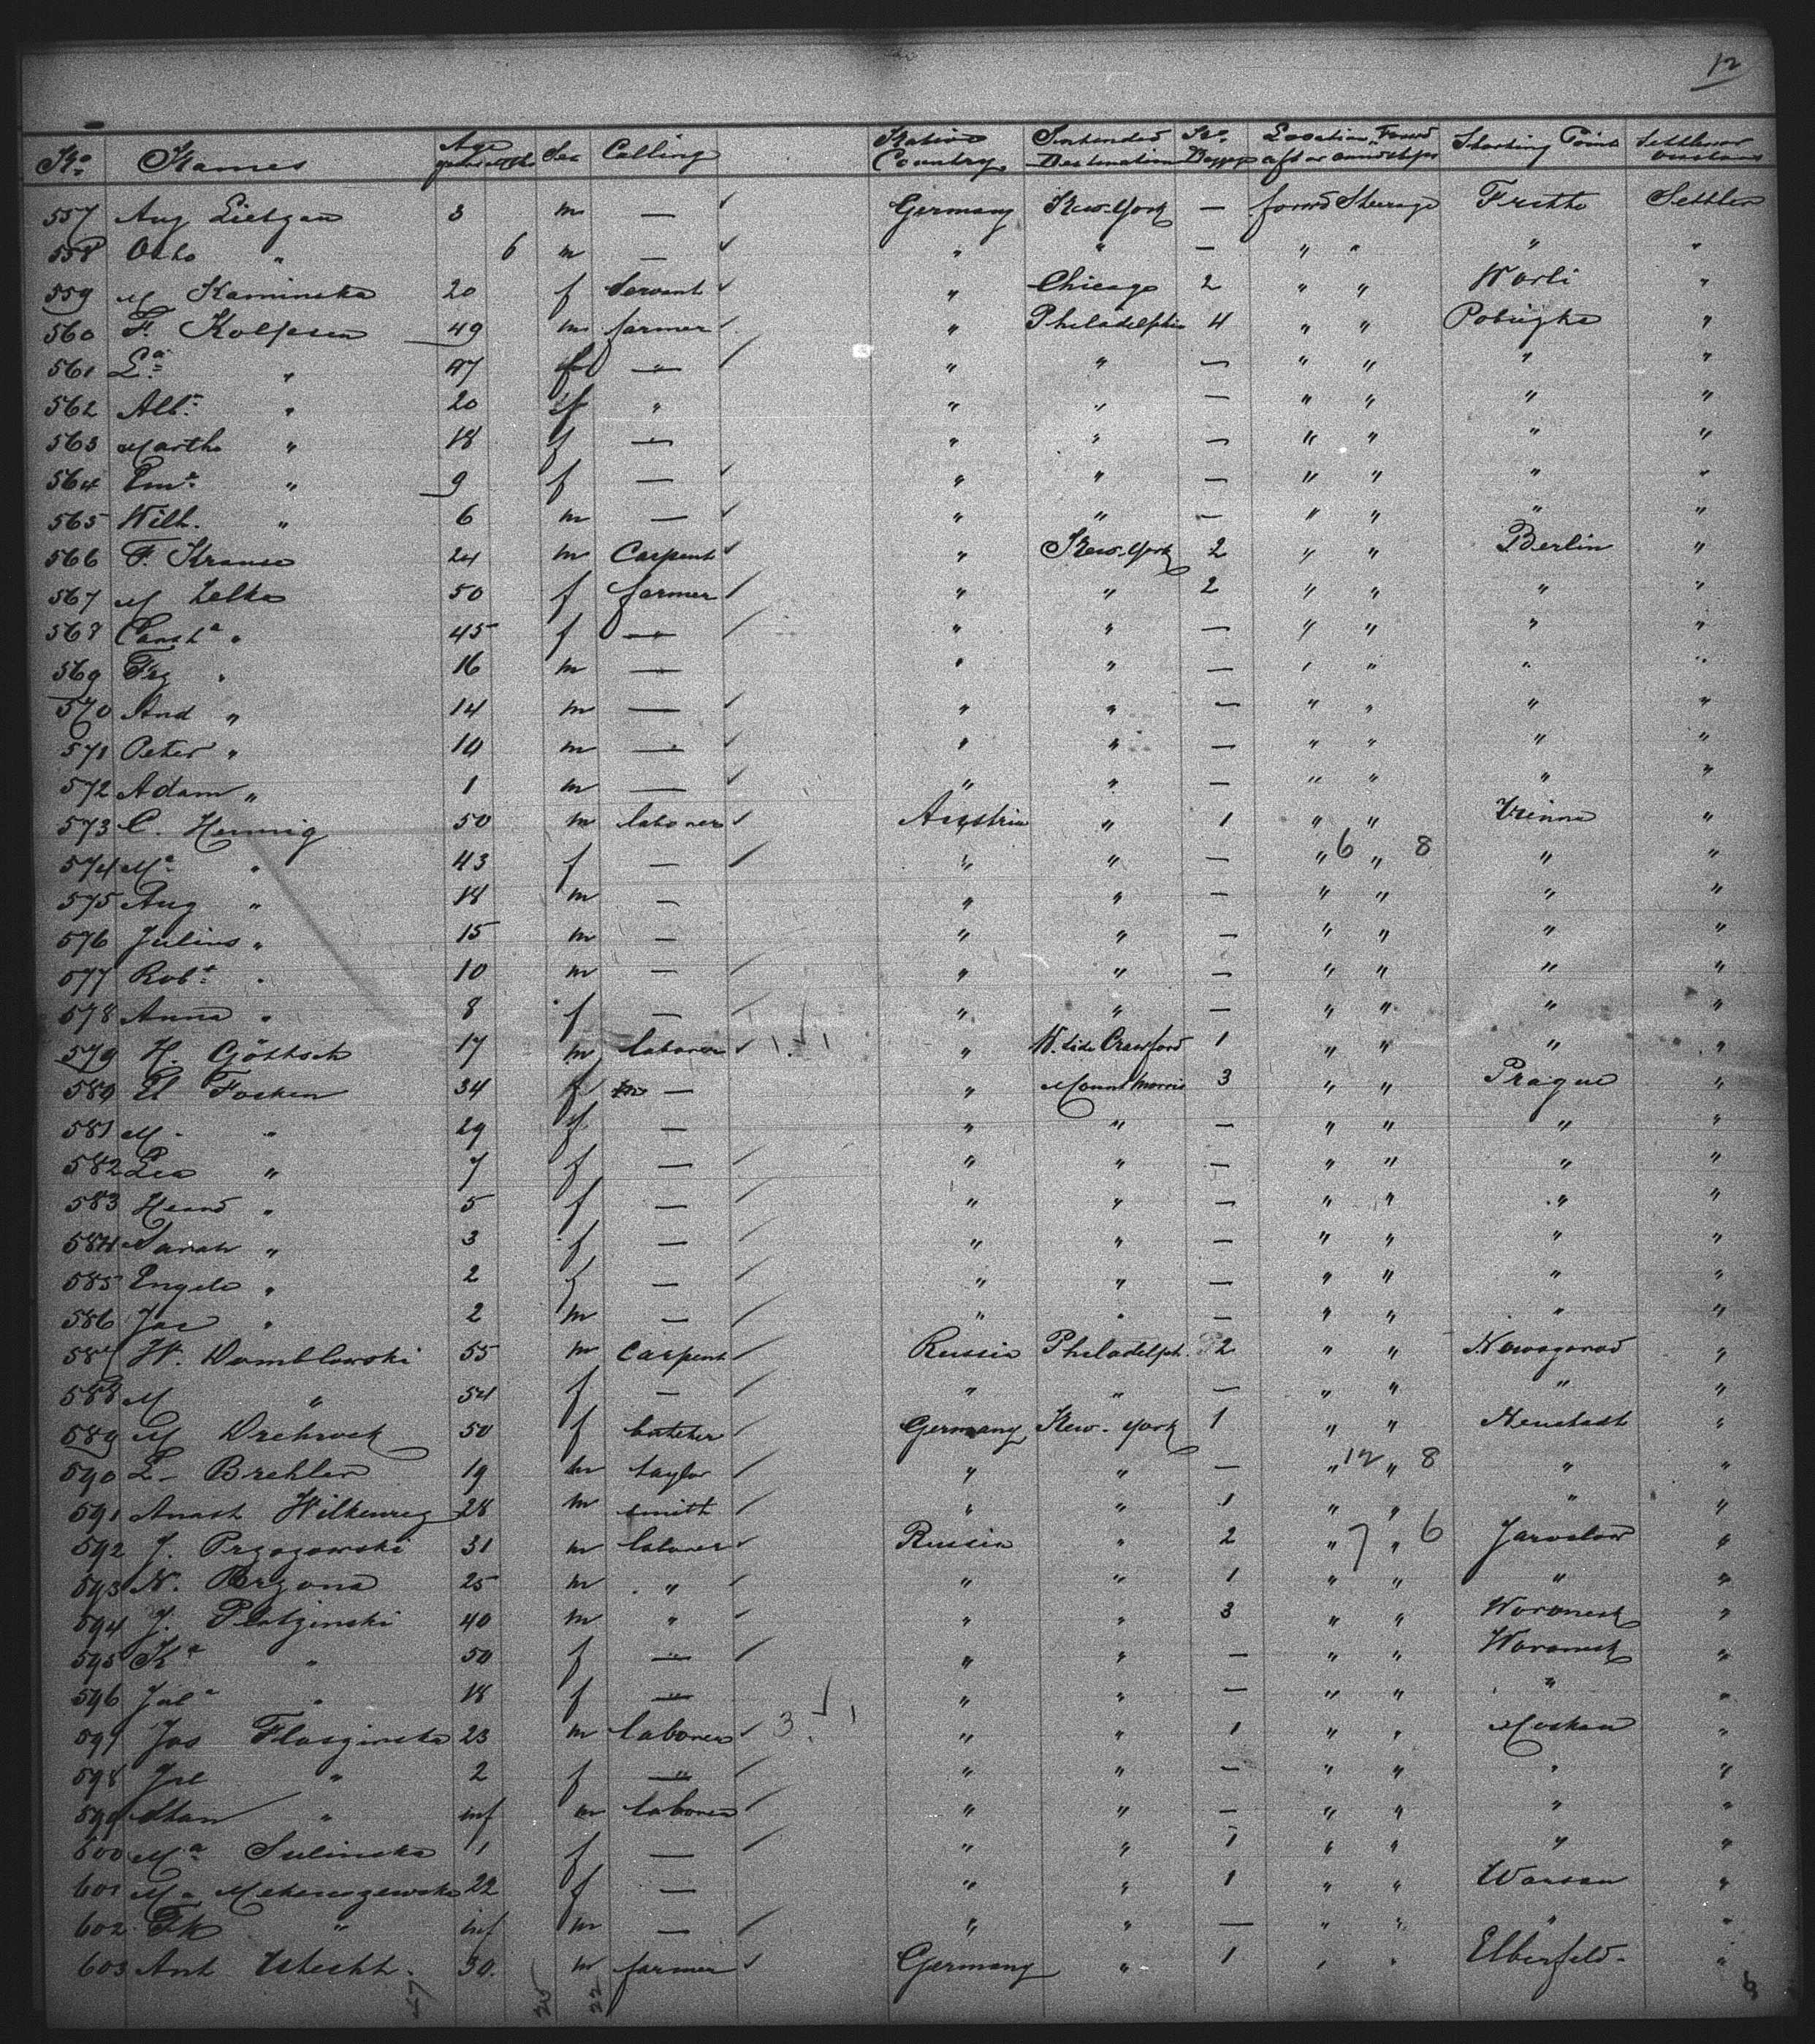 12
No Names Age years mths Sex Calling Native Country Intended Destination No Baggage Location Forwd aft or amidships Starting Point Settlers or visitors
557 Aug 3 m — ✓ Germany New-York — forwd Steerage Settler
558 Otto " 6 m — ✓ " " — " " " "
559 M Kaminska 20 f Servant ✓ " Chicago 2 " " "
560 F. 49 m farmer ✓ " Philadelphia 4 " " "
561 " 47 f — " " — " " " "
562 Alb. " 20 f " " " — " " " "
563 Marths " 18 f — " " — " " " "
564 " 9 f — ✓ " " — " " " "
565 Wilh. " 6 m — ✓ " " — " " " "
566 F. Krause 24 m Carpent ✓ " New-York 2 " " Berlin "
567 M Zelka 50 f farmer " " 2 " " " "
568 " 45 f — " " — " " " "
569 " 16 m — " " — " " " "
570 And " 14 m — ✓ " " — " " " "
571 Peter " 10 m — ✓ " " — " " " "
572 Adam " 1 m — ✓ " " — " " " "
573 C. Hennig 50 m laborer ✓ Austria " 1 " " "
574 Ma " 43 f — " " — " 6 " 8 " "
575 Aug " 18 m — " " — " " " "
576 Julius " 15 m — " " — " " " "
577 Robt " 10 m — " " — " " " "
578 Anna " 8 f — " " — " " " "
579 H. Göttsch 17 m laborer ✓ " W. Side Crawford 1 " " " "
580 El Focken 34 f — " Mount Morris 3 " " Prague "
581 M " 29 f — " " — " " " "
582 Lea " 7 f — " " — " " " "
583 " 5 f — " " — " " " "
584 Sarah " 3 f — " " — " " " "
585 Engele " 2 f — " " — " " " "
586 " 2 m — " " — " " " "
587 W. Domblowski 55 m Carpent Russia Philadelph. 2 " " Nowogorod "
588 M " 54 f — " " — " " " "
589 M 50 f butcher Germany New-York 1 " " Neustadt "
590 L Brehler 19 m taylor " " — " 12 " 8 " "
591 28 m smith " " 1 " " " "
592 J. 31 m laborer ✓ Russia " 2 " 7 " 6 Jaroslow "
593 N. 25 m " " " 1 " " " "
594 J. 40 m " " " 3 " " Woronesk "
595 Ka " 50 f — " " — " " Woronesk "
596 Jula " 18 f — " " — " " " "
597 Jos 23 m laborer 3 " " 1 " " Moskau "
598 " 2 f — " " — " " " "
599 Stan " inf m laborer " " — " " " "
600 Ma Sulinska 1 f — " " 1 " " " "
601 Ma 22 f — " " 1 " " Warsau "
602 " inf m — " " — " " " "
603 Ant 30. m farmer ✓ Germany " 1 " " Elberfeld "
22